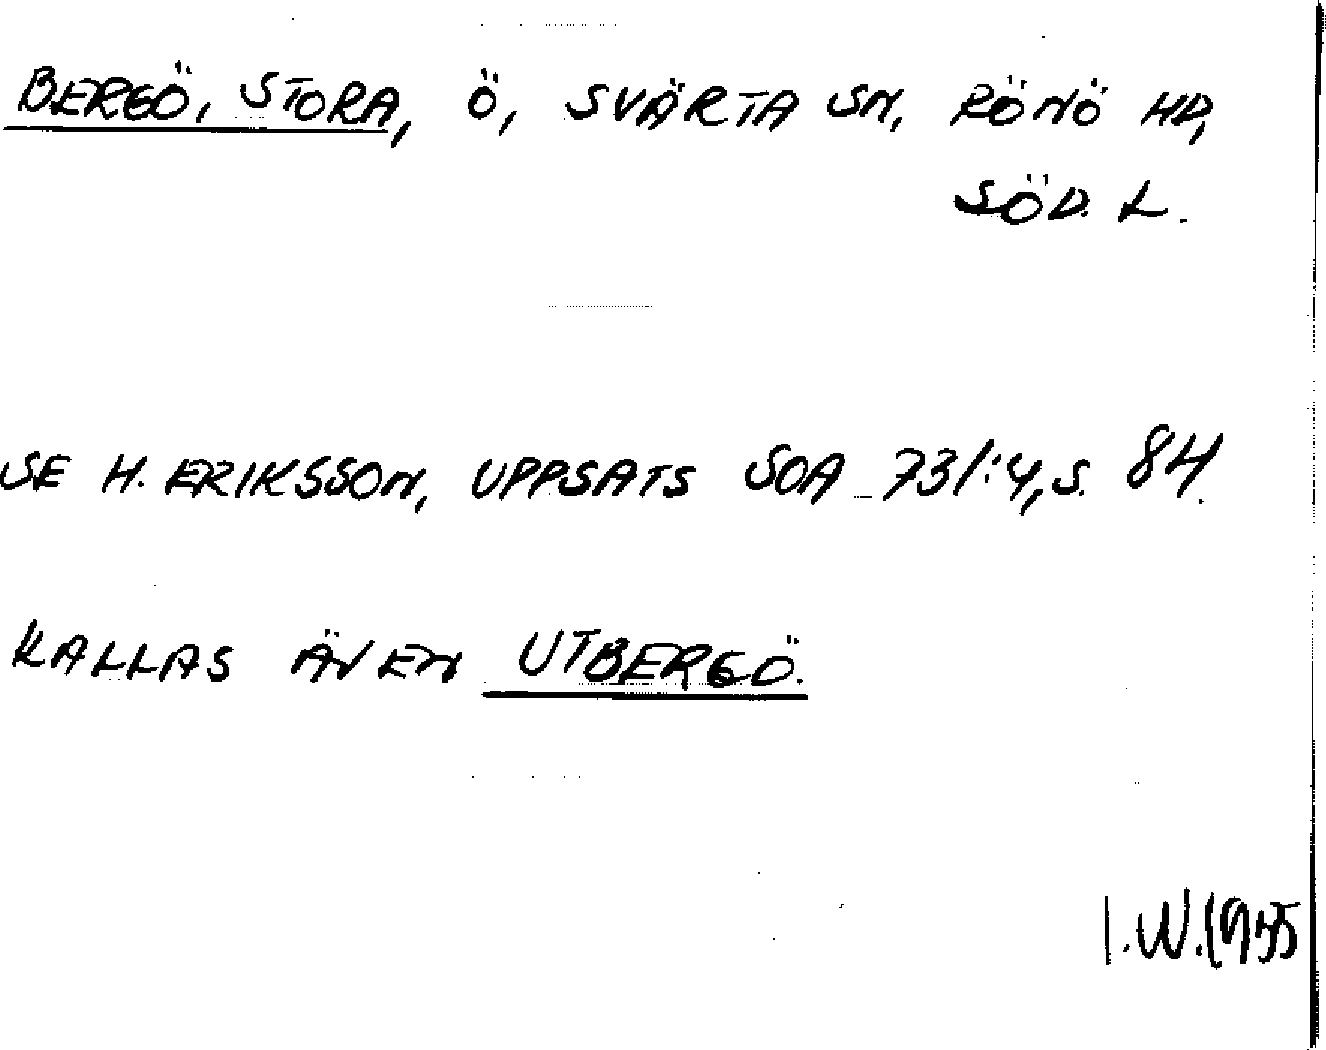 BERGÖ, STORA, Ö, SVÄRTA SN, RÖNÖ HD,
SÖD. L.
SE H. ERIKSSON, UPPSATS SOA 731:4, S. 84.
KALLAS ÄVEN UTBERGÖ.
I.W.